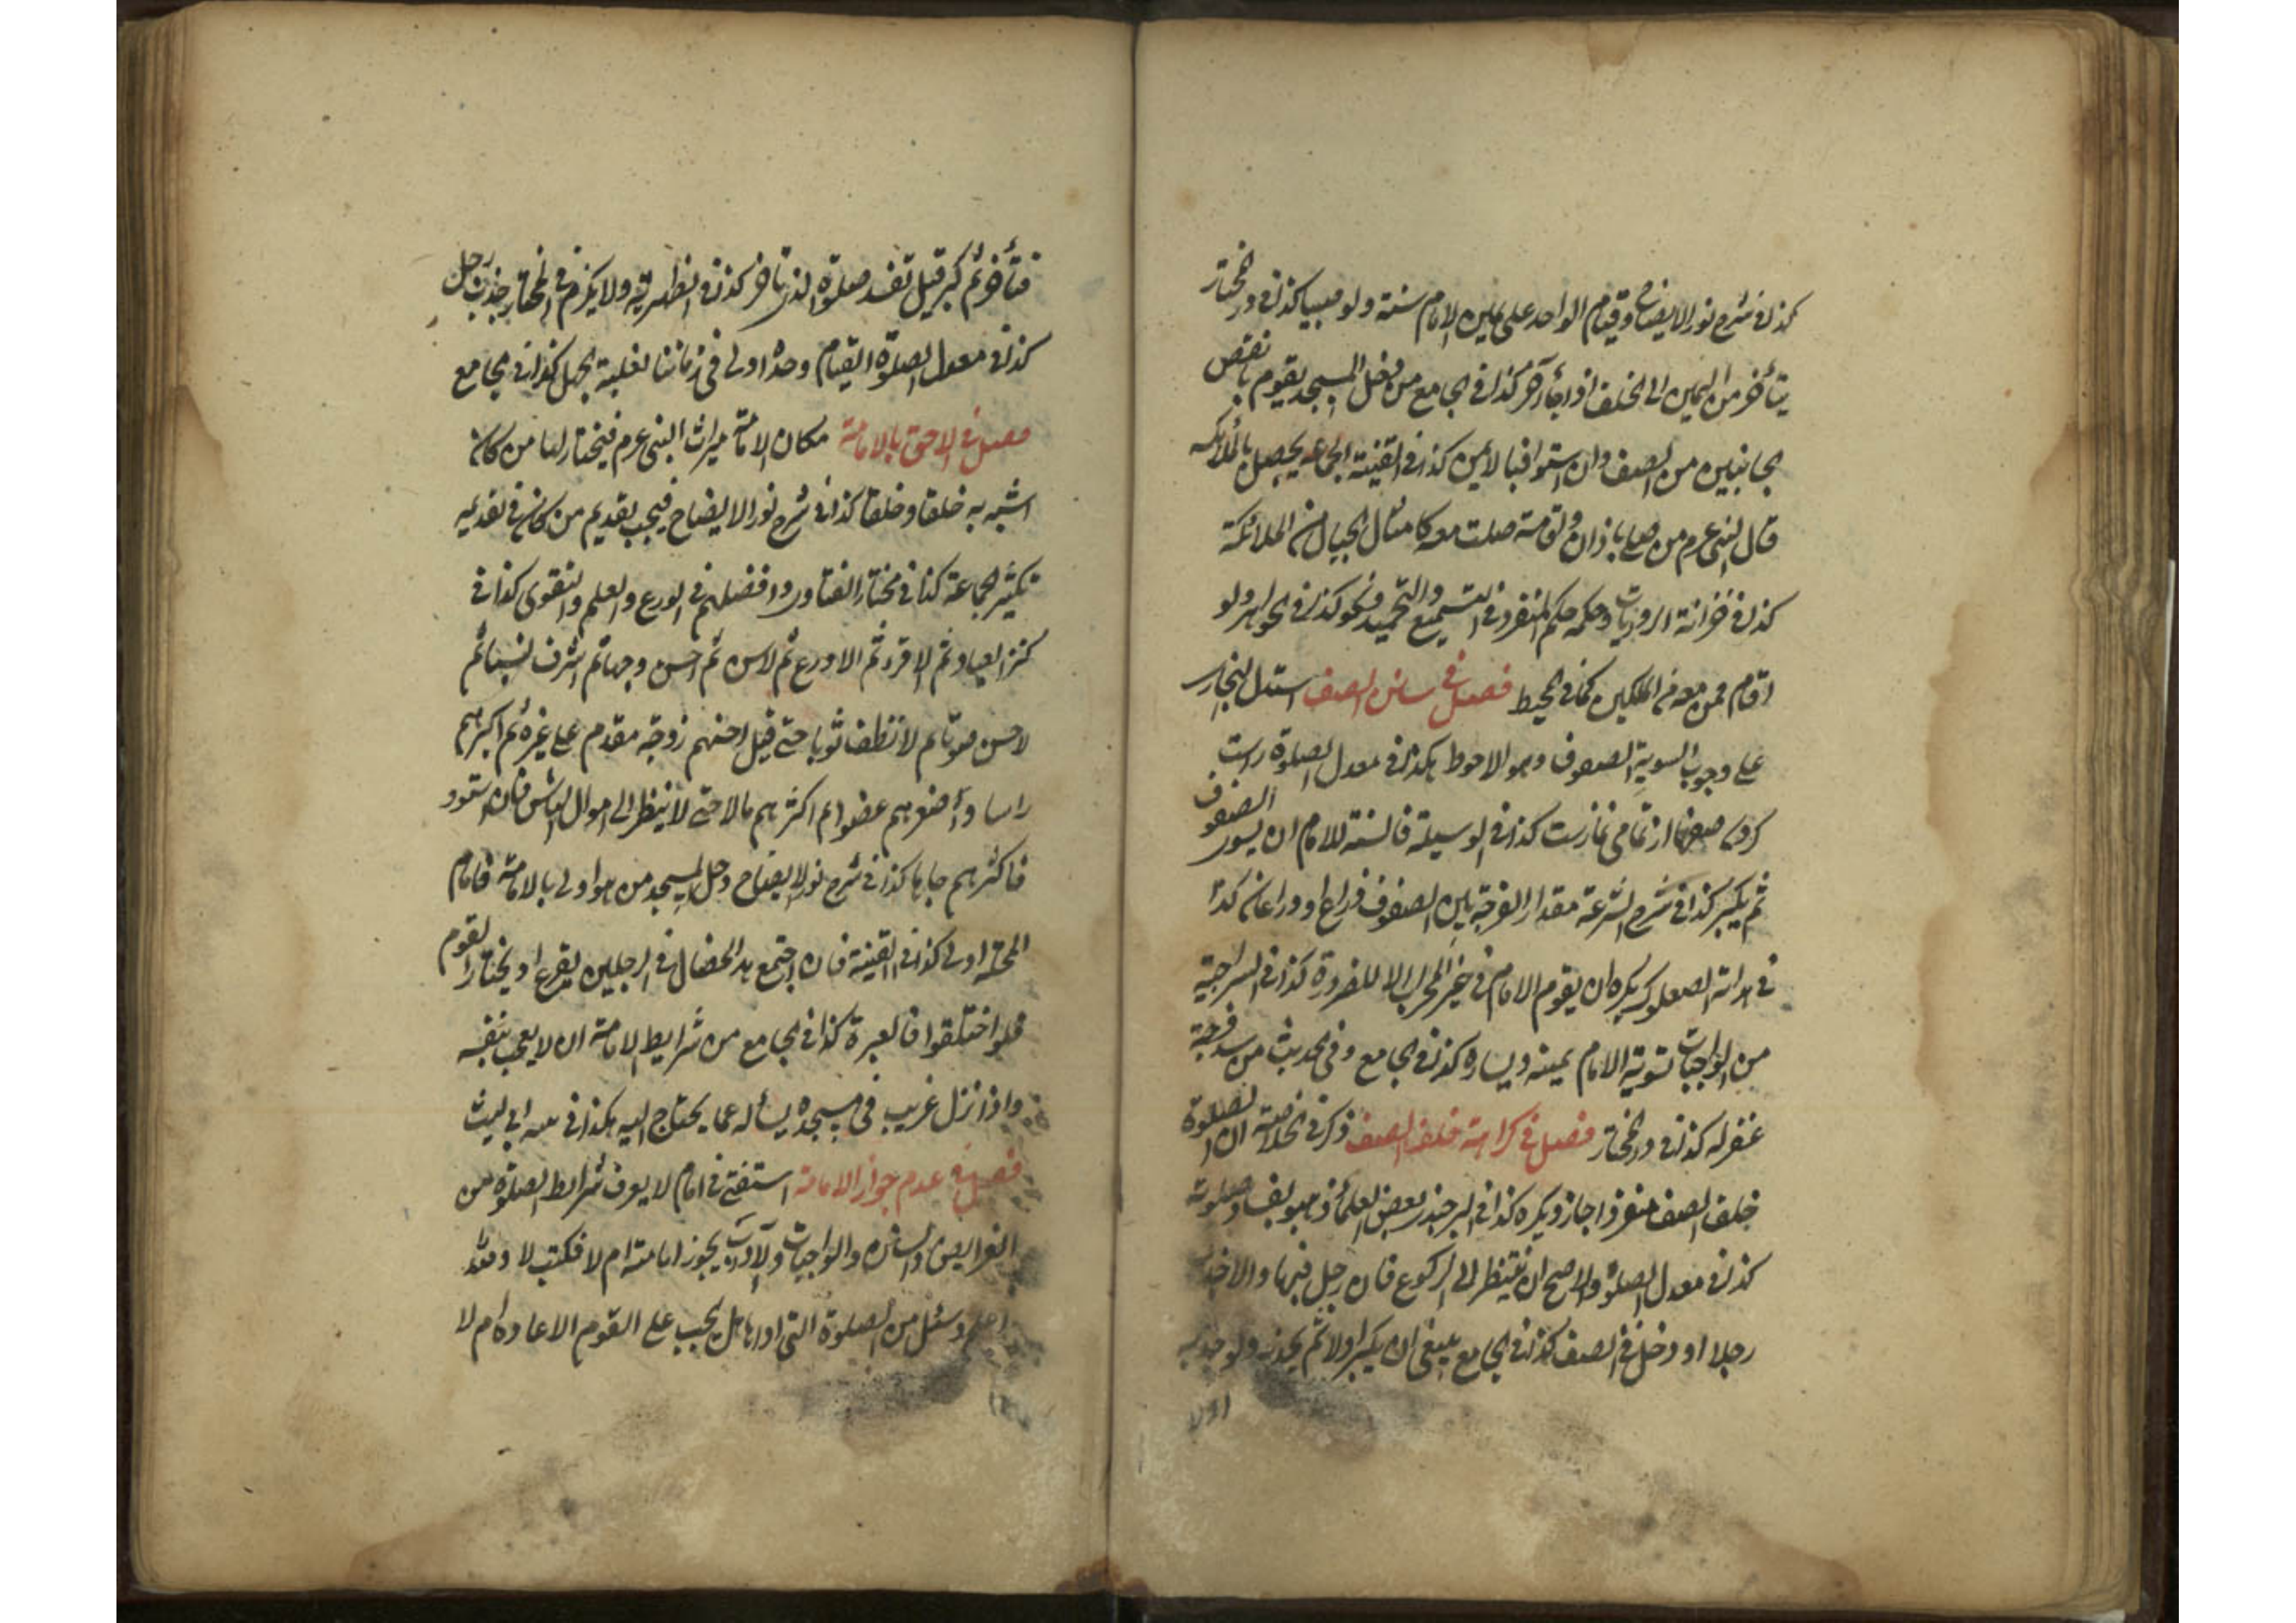 كذا في شرح نور الايضاح وقيام الواحد على يمين الامام سنة ولو صبيا كذا في در المختار
يتأخر من اليمين الى الخلف اذا جاء آخر كذا في الجامع من دخل المسجد يقوم بانقص
الجانبين من الصف وان استوا فبالايمن كذا في القنية الجماعة يحصل بالملائكه
قال النبي عرم من صلى باذان واقامة صلت معه كامثال الجبال من الملائكة
كذا في خزانة الروايات وحكمه حكم المنفرد في التسميع والتحميد ونحو كذا في الجواهر ولو
اقام فمن معه من الملكين كما في المحيط فصل في سنن الصف استدل البخاري
على وجوب التسوية الصفوف وهو الاحوط هكذا في معدل الصلوة راست
كردن صفها از تمامى نمازست كذا في الوسيلة فالسنة للامام ان يسوى الصفوف
ثم يكبر كذا في شرح الشرعة مقدار الفرجة بين الصفوف ذراع او ذراعان كذا
في هداية الصعلوك يكره ان يقوم الامام في غير المحراب الا للضرورة كذا في السراجية
من الواجبات تسوية الامام يمينه ويساره كذا في الجامع وفي الحديث من سد فرجة
غفر له كذا في در المختار فصل في كراهة خلف الصف ذكر في الخلاصة ان الصلوة
خلف الصف منفردا جاز ويكره كذا في البرجندي بعض العلماء ذهبوا بفساد صلوته
كذا في معدل الصلوة والاصح ان ينتظر الى الركوع فان رجل فبها والا جذب
رجلا او دخل في الصف كذا في الجامع ينبغي ان يكبر اولا ثم يجذبه ولو جذبه
فتأخر ثم كبر قيل تفسد صلوة الذي تأخر كذا في الظهيرية ولا يكره في المختار جذب رجل
كذا في معدل الصلوة القيام وحده اولى في زماننا لغلبة الجهل كذا في الجامع
فصل في الاحق بالامامة مكان الامامة ميراث النبي عرم فيختار لها من كان
اشبه به خلقا وخلقا كذا في شرح نور الايضاح فيجب تقديم من كان في تقديمه
تكثير الجماعة كذا في مختار الفتاوى وافضلهم في الورع والعلم والتقوى كذا في
كنز العباد ثم الاقرء ثم الاورع ثم لاسن ثم احسن وجها ثم اشرف نسبا ثم
لاحسن صوتا ثم لانظف ثوبا حتى قيل احسنهم زوجة مقدم على غيره ثم اكبرهم
راسا واصغرهم عضوا ثم اكثرهم مالا حتى لا ينظر الى اموال الناس فان استوو
فاكثرهم جاها كذا في شرح نور الايضاح دخل المسجد من هو اولى بالامامة فامام
المحلة اولى كذا في القنية فان اجتمع هذه الخصال في الرجلين يقرع او يختار القوم
فلو اختلفوا فالعبرة كذا في الجامع من شرايط الامامة ان لا يعجب بنفسه
واذا نزل غريب في مسجده يسأله عما يحتاج اليه هكذا في ابى ليث
فصل في عدم جواز الامامة استفتى في امام لا يعرف شرايط الصلوة من
الفرايض والسنن والواجبات والآداب يجوز امامته ام لا فكتب لا والله
اعلم وسئل من الصلوة التي اداها هل يجب على القوم الاعادة ام لا